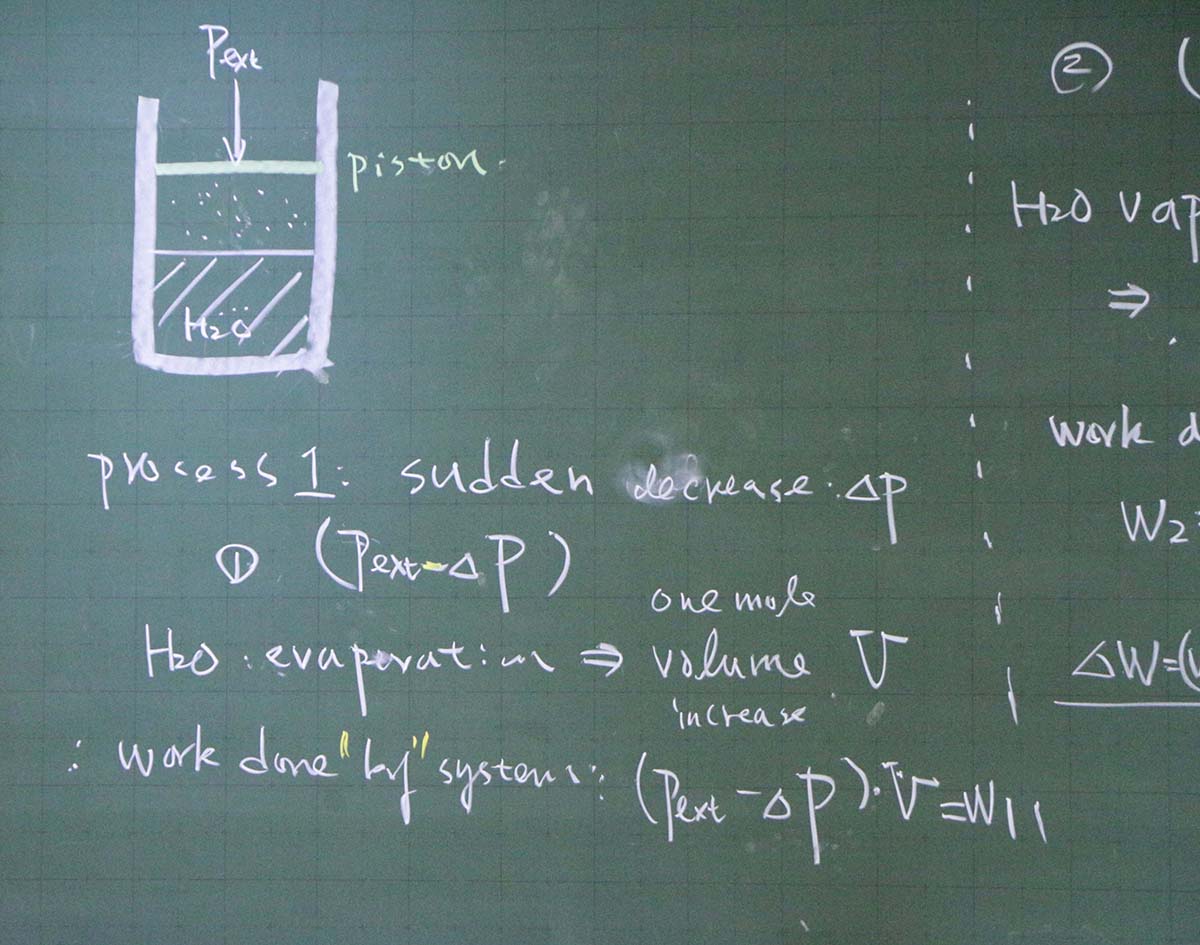 Pext
piston.
H2O
process 1: sudden decrease: ΔP
① (Pext-ΔP)
one mole
H2O: evaporation ⇒ volume V
increase
∴ work done "by" system: (Pext-ΔP)·V=W1
② (
H2O vap
⇒
work d
W2=
ΔW=(